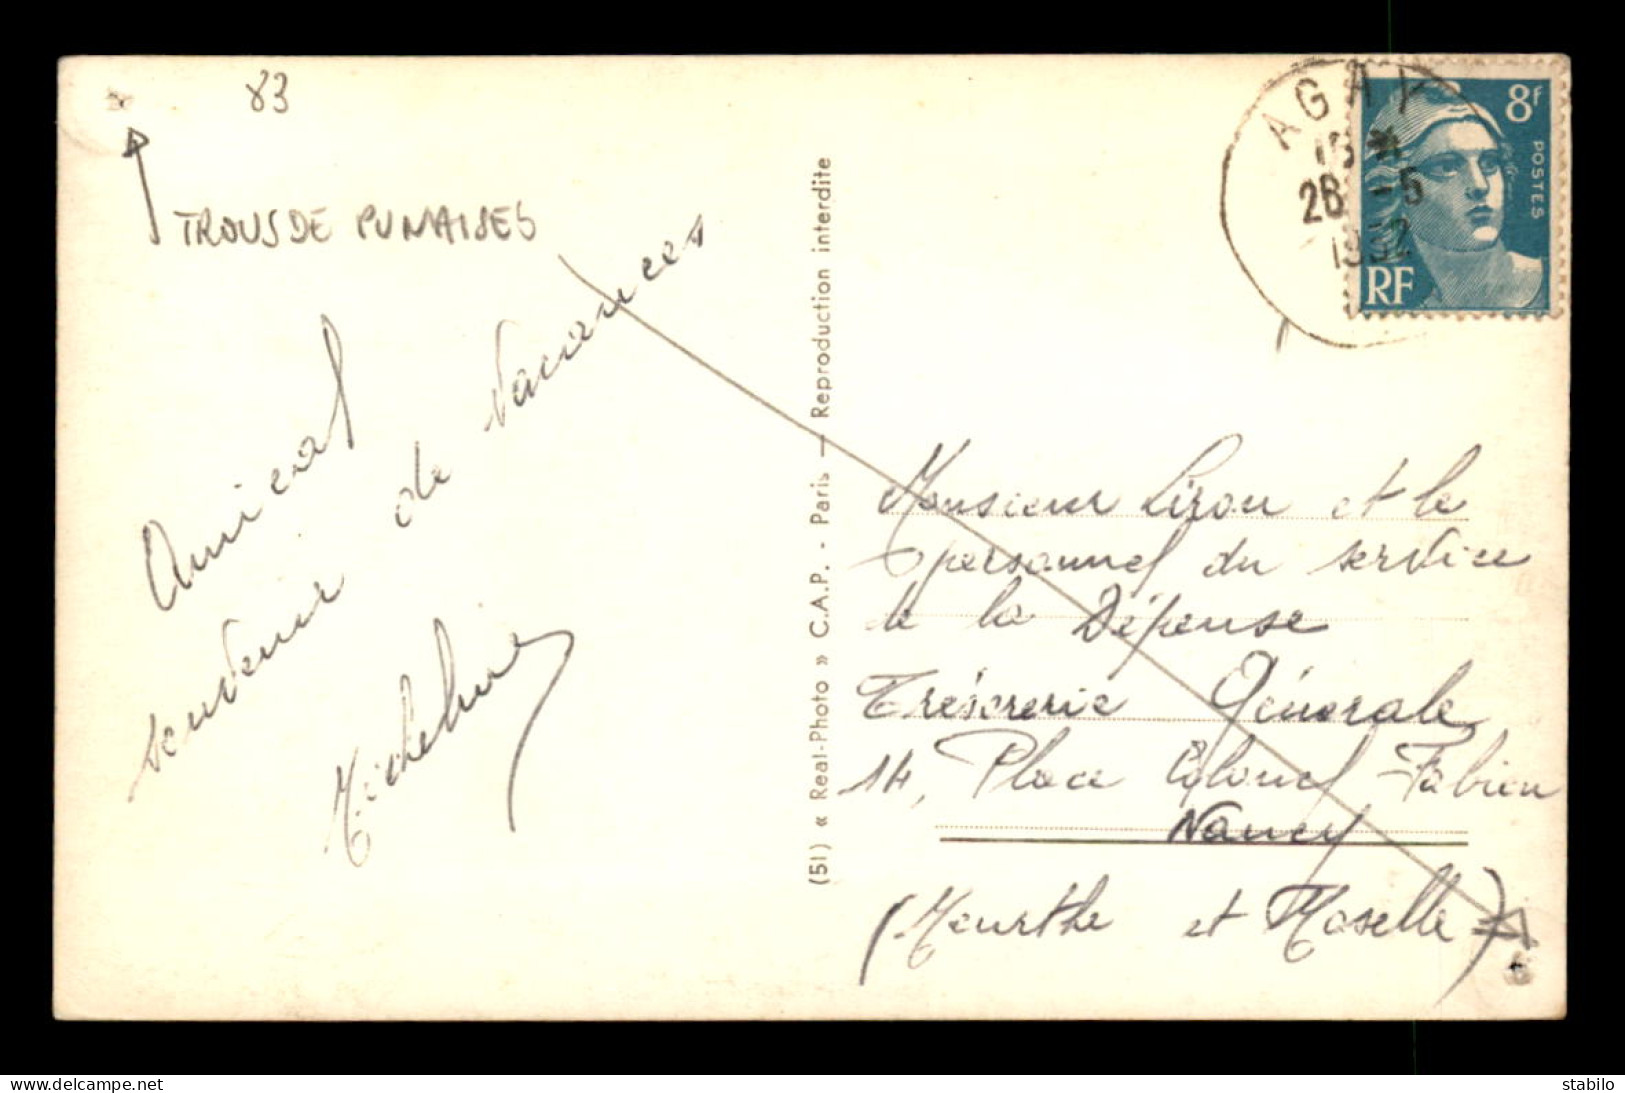 83
TROUS DE PUNAISES
Amical
souvenir de vacances
Micheline
(51) « Real-Photo » C.A.P. - Paris — Reproduction interdite
AGAY
16 *
26 -5
1952
8F
POSTES
RF
Monsieur Liron et le
personnel du service
de la Défense
Trésorerie Générale
14, Place Colonel Fabien
Nancy
(Meurthe et Moselle)
www.delcampe.net
stabilo